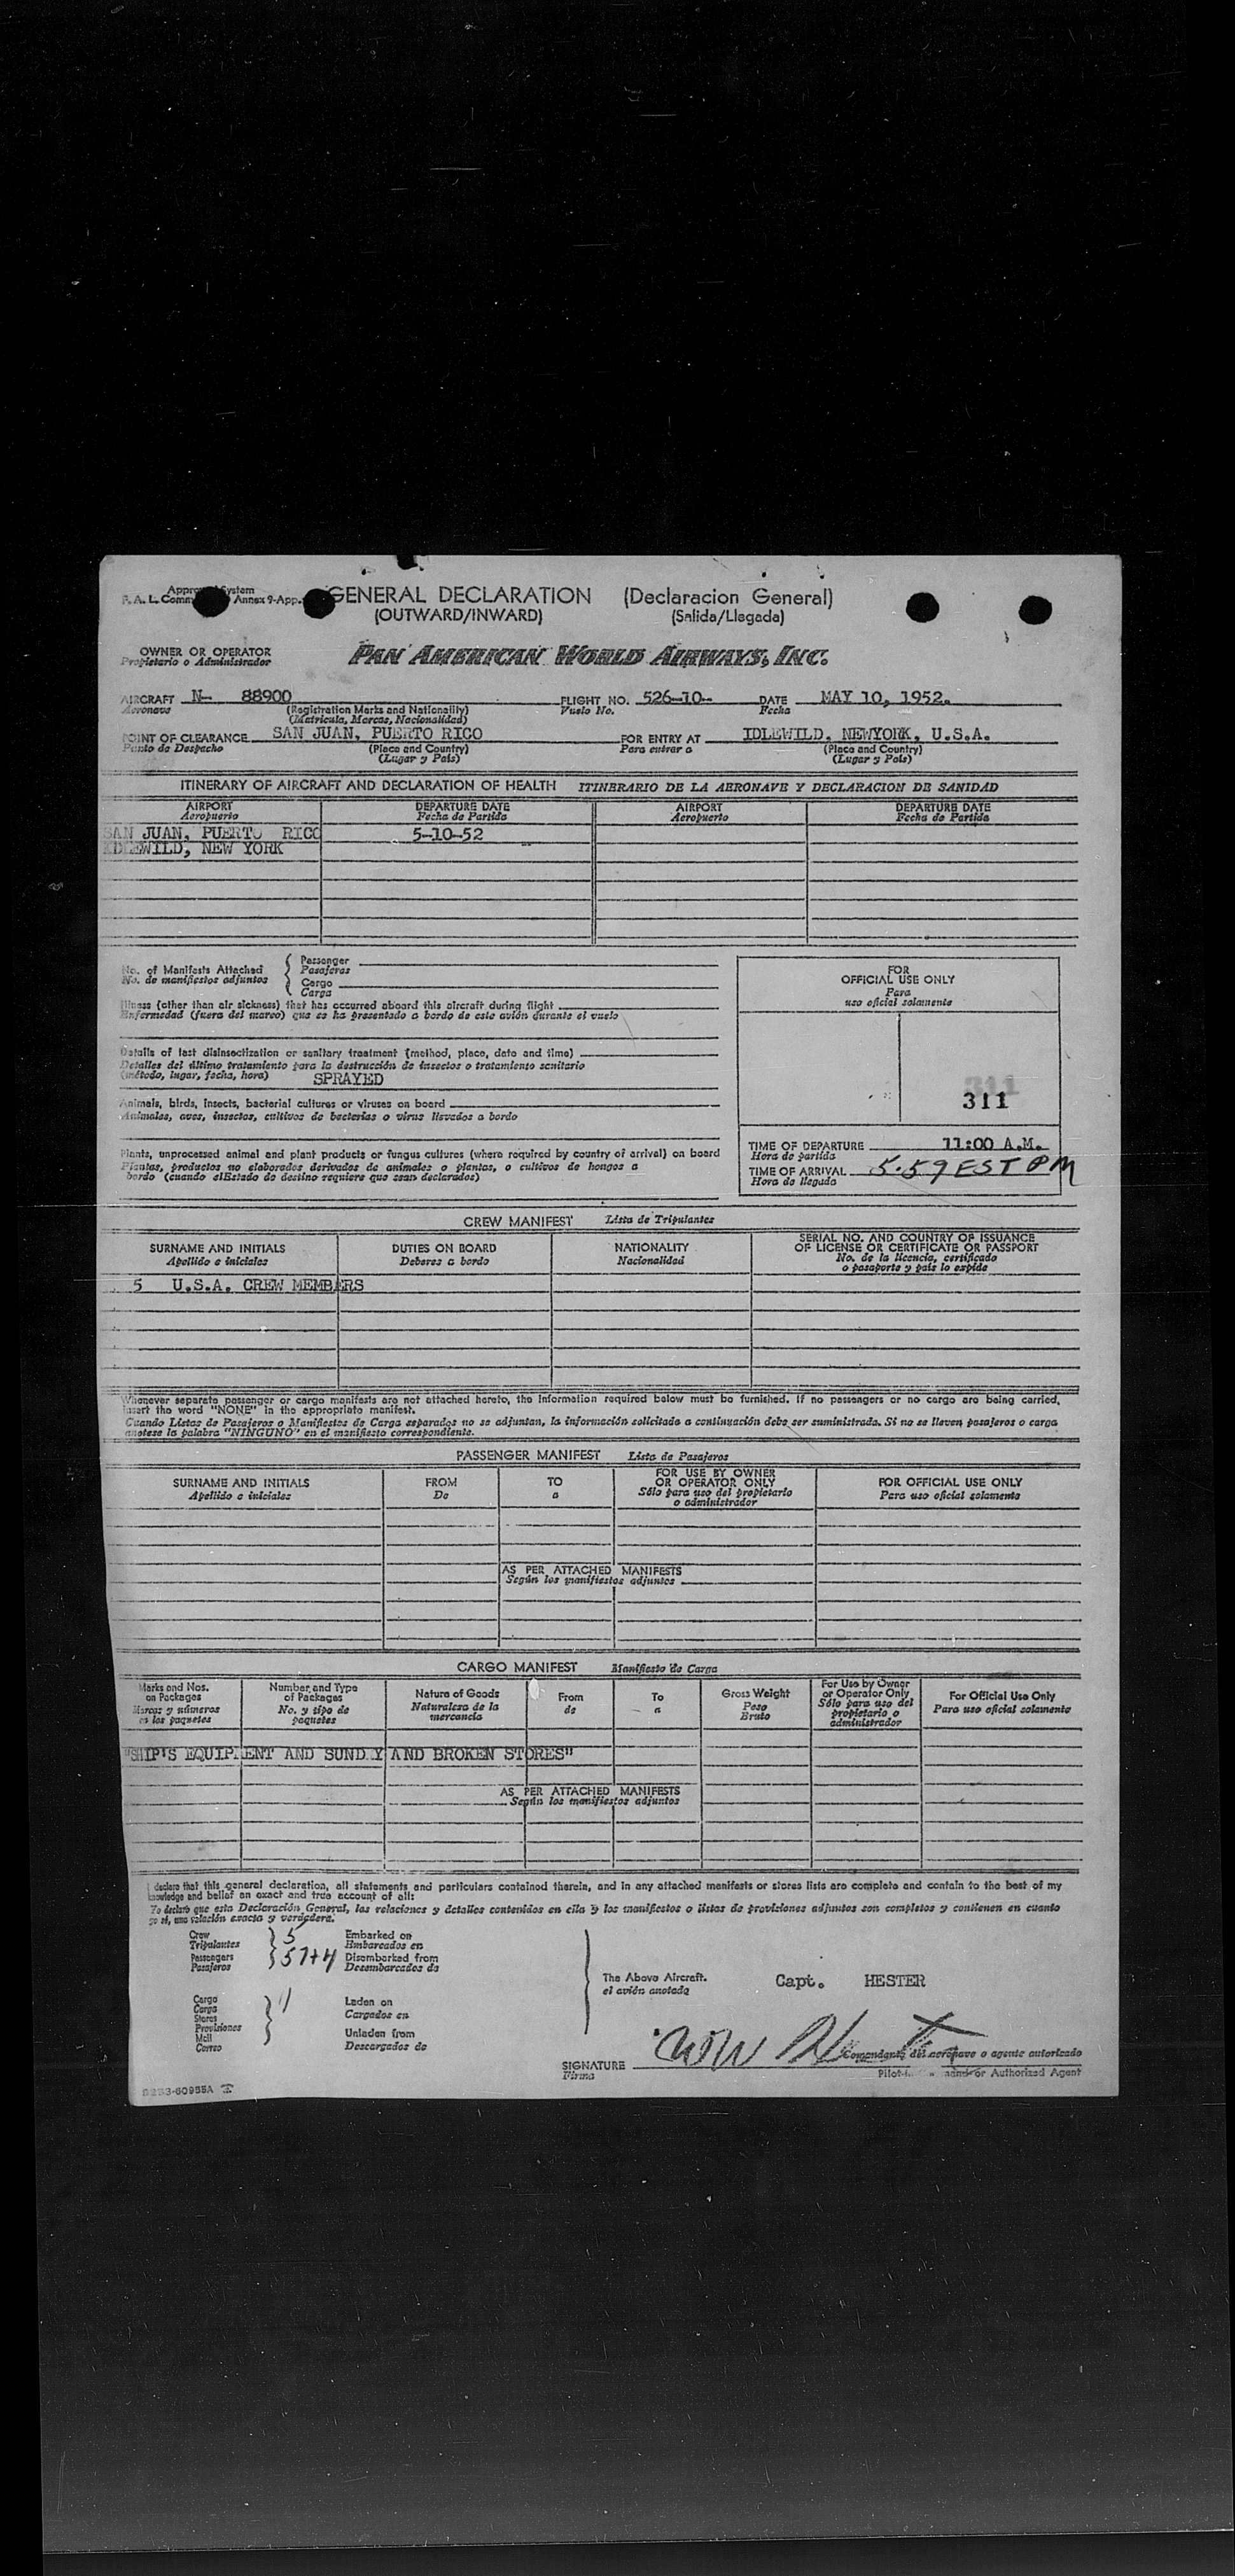 GENERAL DECLARATION (Declaracion General)
(OUTWARD/INWARD) (Salida/Llegada)
OWNER OR OPERATOR
Propietario o Administrador
PAN AMERICAN WORLD AIRWAYS, INC.
AIRCRAFT N- 88900 FLIGHT NO. 526-10- DATE MAY 10, 1952.
Aeronave (Registration Marks and Nationality) Vuelo No. Fecha
(Matricula, Marcas, Nacionalidad)
POINT OF CLEARANCE SAN JUAN, PUERTO RICO FOR ENTRY AT IDLEWILD, NEWYORK, U.S.A.
Punto de Despacho (Place and Country) Para entrar a (Place and Country)
(Lugar y País) (Lugar y País)
ITINERARY OF AIRCRAFT AND DECLARATION OF HEALTH ITINERARIO DE LA AERONAVE Y DECLARACION DE SANIDAD
AIRPORT DEPARTURE DATE AIRPORT DEPARTURE DATE
Aeropuerto Fecha de Partida Aeropuerto Fecha de Partida
SAN JUAN, PUERTO RICO 5-10-52
IDLEWILD, NEW YORK
No. of Manifests Attached
No. de manifiestos adjuntos
Passenger
Pasajeros
Cargo
Carga
Illness (other than air sickness) that has occurred aboard this aircraft during flight
Enfermedad (fuera del mareo) que se ha presentado a bordo de este avión durante el vuelo
Details of last disinsectization or sanitary treatment (method, place, date and time)
Detalles del último tratamiento para la destrucción de insectos o tratamiento sanitario
(método, lugar, fecha, hora) SPRAYED
Animals, birds, insects, bacterial cultures or viruses on board
Animales, aves, insectos, cultivos de bacterias o virus llevados a bordo
Plants, unprocessed animal and plant products or fungus cultures (where required by country of arrival) on board
Plantas, productos no elaborados derivados de animales o plantas, o cultivos de hongos a
bordo (cuando elEstado de destino requiere que sean declarados)
FOR
OFFICIAL USE ONLY
Para
uso oficial solamente
311
311
TIME OF DEPARTURE 11:00 A.M.
Hora de partida
TIME OF ARRIVAL 5.59 EST PM
Hora de llegada
CREW MANIFEST Lista de Tripulantes
SURNAME AND INITIALS DUTIES ON BOARD NATIONALITY SERIAL NO. AND COUNTRY OF ISSUANCE
OF LICENSE OR CERTIFICATE OR PASSPORT
Apellido e iniciales Deberes a bordo Nacionalidad No. de la licencia, certificado
o pasaporte y país lo expide
5 U.S.A. CREW MEMBERS
Whenever separate passenger or cargo manifests are not attached hereto, the information required below must be furnished. If no passengers or no cargo are being carried,
insert the word "NONE" in the appropriate manifest.
Cuando Listas de Pasajeros o Manifiestos de Carga separados no se adjuntan, la información solicitada a continuación debe ser suministrada. Si no se lleven pasajeros o carga
anotese la palabra "NINGUNO" en el manifiesto correspondiente.
PASSENGER MANIFEST Lista de Pasajeros
SURNAME AND INITIALS FROM TO FOR USE BY OWNER
OR OPERATOR ONLY FOR OFFICIAL USE ONLY
Apellido e iniciales De a Sólo para uso del propietario
o administrador Para uso oficial solamente
AS PER ATTACHED MANIFESTS
Según los manifiestos adjuntos
CARGO MANIFEST Manifiesto de Carga
Marks and Nos.
on Packages
Marcas y números
en los paquetes
Number and Type
of Packages
No. y tipo de
paquetes
Nature of Goods
Naturaleza de la
mercancía
From
de
To
a
Gross Weight
Peso
Bruto
For Use by Owner
or Operator Only
Sólo para uso del
propietario o
administrador
For Official Use Only
Para uso oficial solamente
"SHIP'S EQUIPMENT AND SUNDRY AND BROKEN STORES"
AS PER ATTACHED MANIFESTS
Según los manifiestos adjuntos
I declare that this general declaration, all statements and particulars contained therein, and in any attached manifests or stores lists are complete and contain to the best of my
knowledge and belief an exact and true account of all:
Yo declaro que esta Declaración General, las relaciones y detalles contenidos en ella y los manifiestos o listas de provisiones adjuntos son completos y contienen en cuanto
yo sé, una relación exacta y verdadera.
Crew
Tripulantes 5 Embarked on
Embarcados en
Passengers
Pasajeros 57+4 Disembarked from
Desembarcados de
The Above Aircraft. Capt. HESTER
el avión anotado
Cargo
Carga
Stores
Provisiones
Mail
Correo
Laden on
Cargados en
Unladen from
Descargados de
SIGNATURE
Firma
Comandante del aeronave o agente autorizado
or Authorized Agent